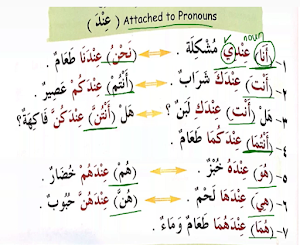 ( عِنْدَ ) Attached to Pronouns
noun
١- (أَنَا) عِنْدِي مُشْكِلَة . (نَحْنُ) عِنْدَنَا طَعَامٌ .
٢- (أَنْتَ) عِنْدَكَ شَرَابٌ . (أَنْتُمْ) عِنْدَكُمْ عَصِيرٌ .
٣- هَلْ (أَنْتِ) عِنْدَكِ لَبَنٌ ؟ هَلْ (أَنْتُنَّ) عِنْدَكُنَّ فَاكِهَةٌ؟
٤- (أَنْتُمَا) عِنْدَكُمَا طَعَامٌ .
٥- (هُوَ) عِنْدَهُ خُبْزٌ . (هُمْ) عِنْدَهُمْ خَضَارٌ .
٦- (هِيَ) عِنْدَهَا لَحْمٌ . (هُنَّ) عِنْدَهُنَّ حُبُوبٌ .
٧- (هُمَا) عِنْدَهُمَا طَعَامٌ وَمَاءٌ .